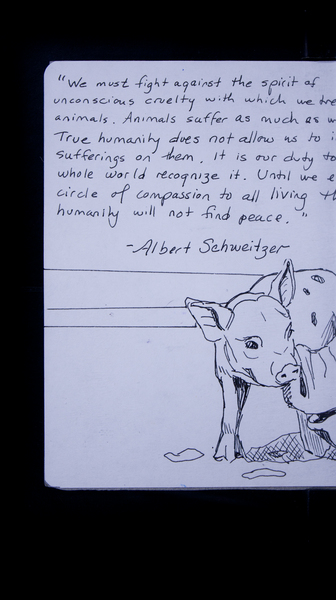 "We must fight against the spirit of
unconscious cruelty with which we
animals. Animals suffer as much as
True humanity does not allow us to
sufferings on them. It is our duty to
whole world recognize it. Until we
circle of compassion to all living
humanity will not find peace."
-Albert Schweitzer